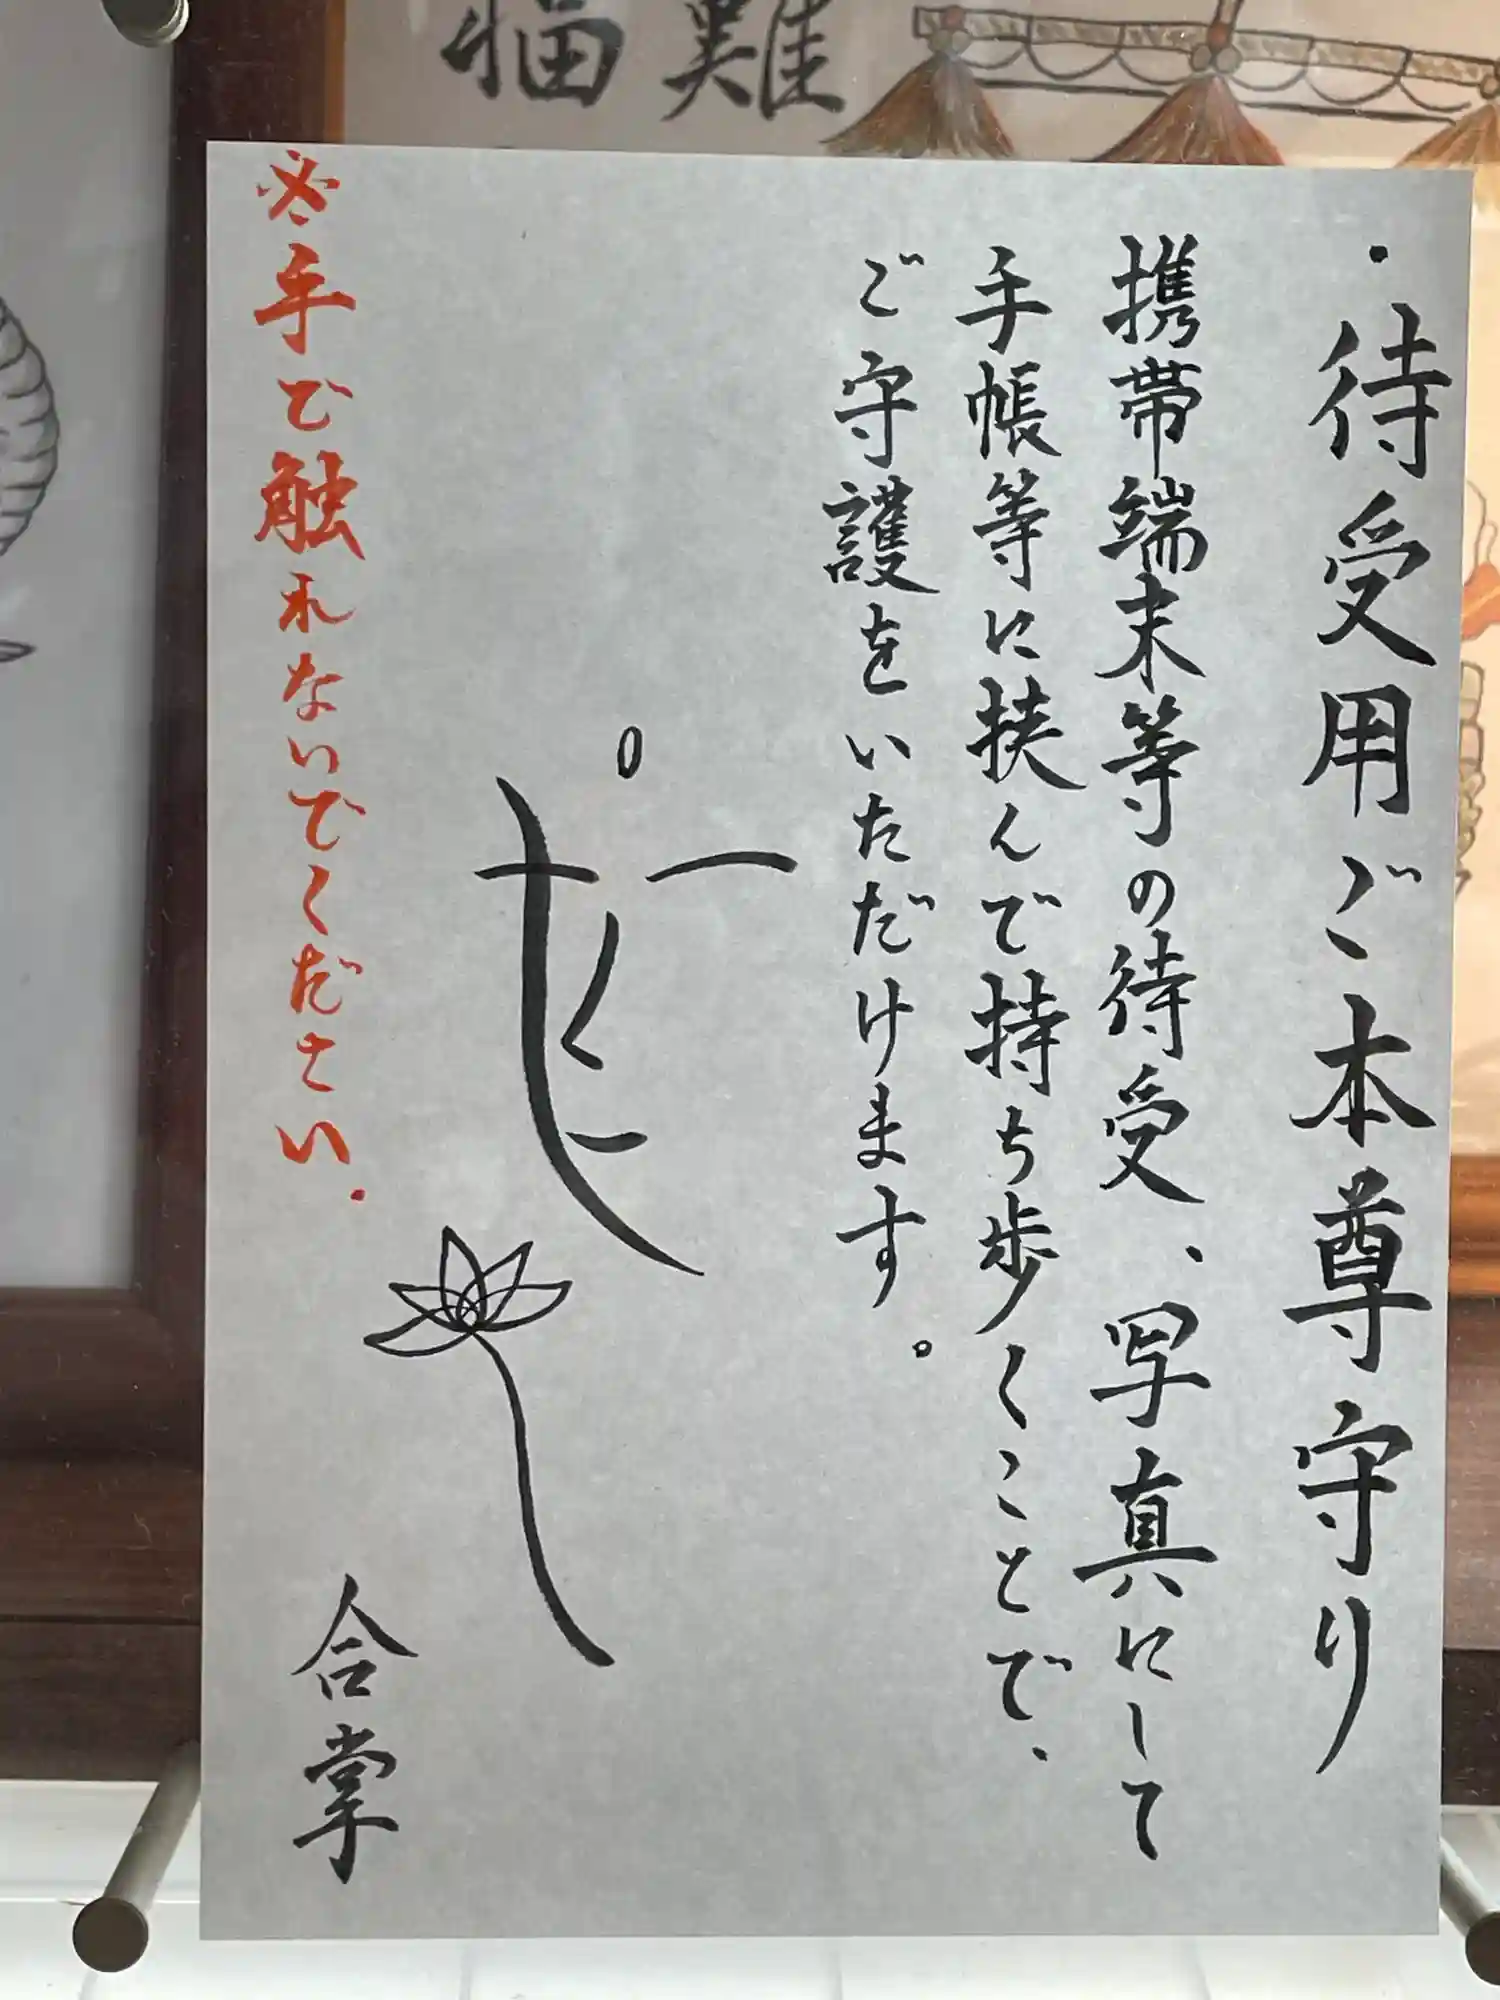 ・待受用ご本尊守り
携帯端末等の待受、写真にして
手帳等に挟んで持ち歩くことで、
ご守護をいただけます。
合掌
※手で触れないでください。
難
福